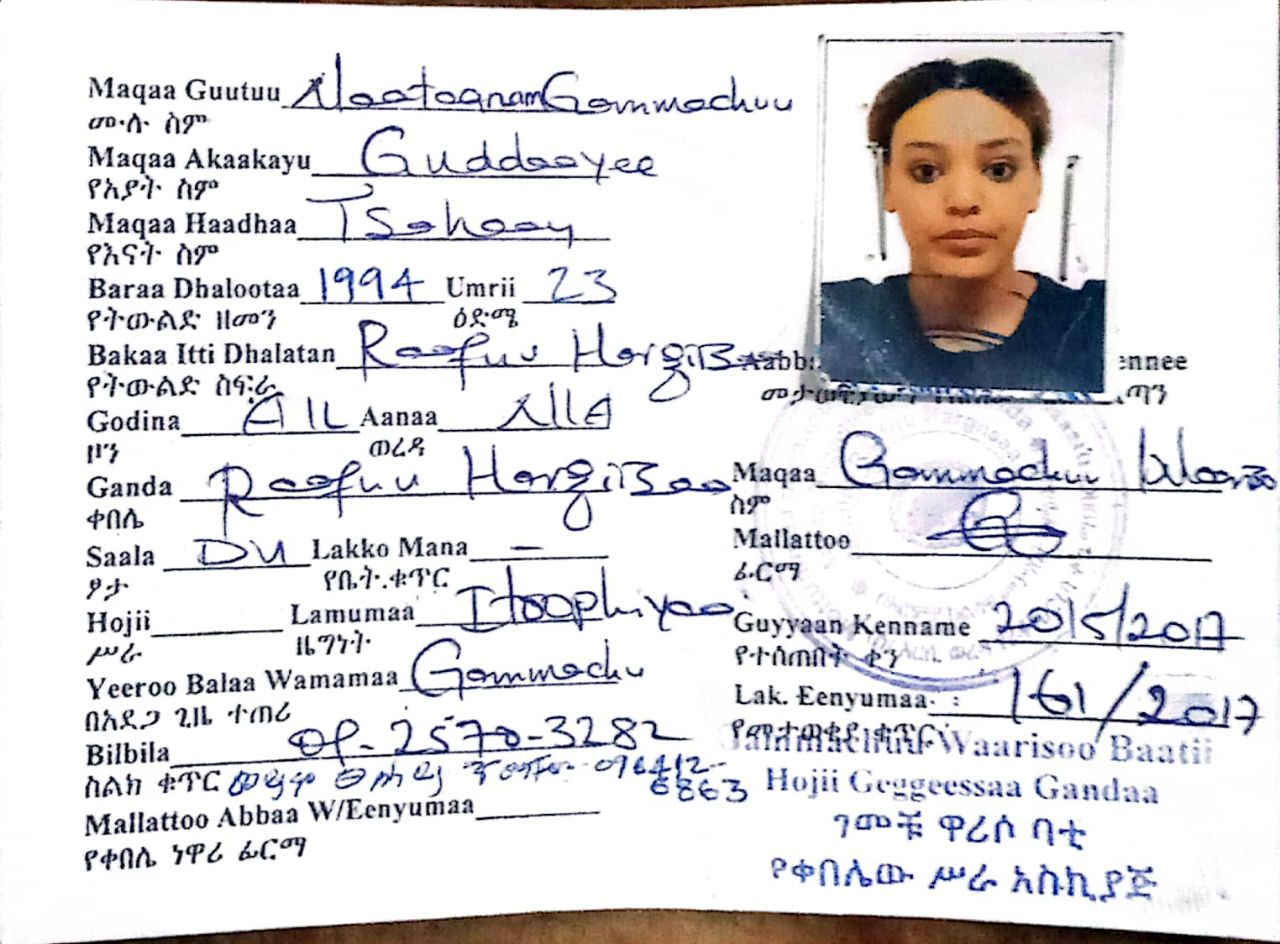 Maqaa Guutuu NaatoanamGammachuu
ሙሉ ስም
Maqaa Akaakayu Guddaayee
የአያት ስም
Maqaa Haadhaa Tsahaay
የእናት ስም
Baraa Dhalootaa 1994 Umrii 23
የትውልድ ዘመን ዕድሜ
Bakaa Itti Dhalatan Raafuu HargiBaa
የትውልድ ስፍራ
Godina A/L Aanaa N/A
ዞን ወረዳ
Ganda Raafuu HargiBaa
ቀበሌ
Saala DU Lakko Mana –
ፆታ የቤት.ቁጥር
Hojii Lamumaa Itoophiyaa
ሥራ ዜግነት
Yeeroo Balaa Wamamaa Gammachu
በአደጋ ጊዜ ተጠሪ
Bilbila 09-2570-3282
ስልክ ቁጥር 096412-
6863
Mallattoo Abbaa W/Eenyumaa
የቀበሌ ነዋሪ ፊርማ
Aabb ennee
ጣን
Maqaa Gammachuu
ስም
Mallattoo
ፊርማ
Guyyaan Kenname 20/5/2017
የተሰጠበት ቀን
Lak. Eenyumaa : 161/2017
የመታወቂያ ቁጥር
Gammachuu Waarisoo Baatii
Hojii Geggeessaa Gandaa
ገመቹ ዋሪሶ ባቲ
የቀበሌው ሥራ አስኪያጅ